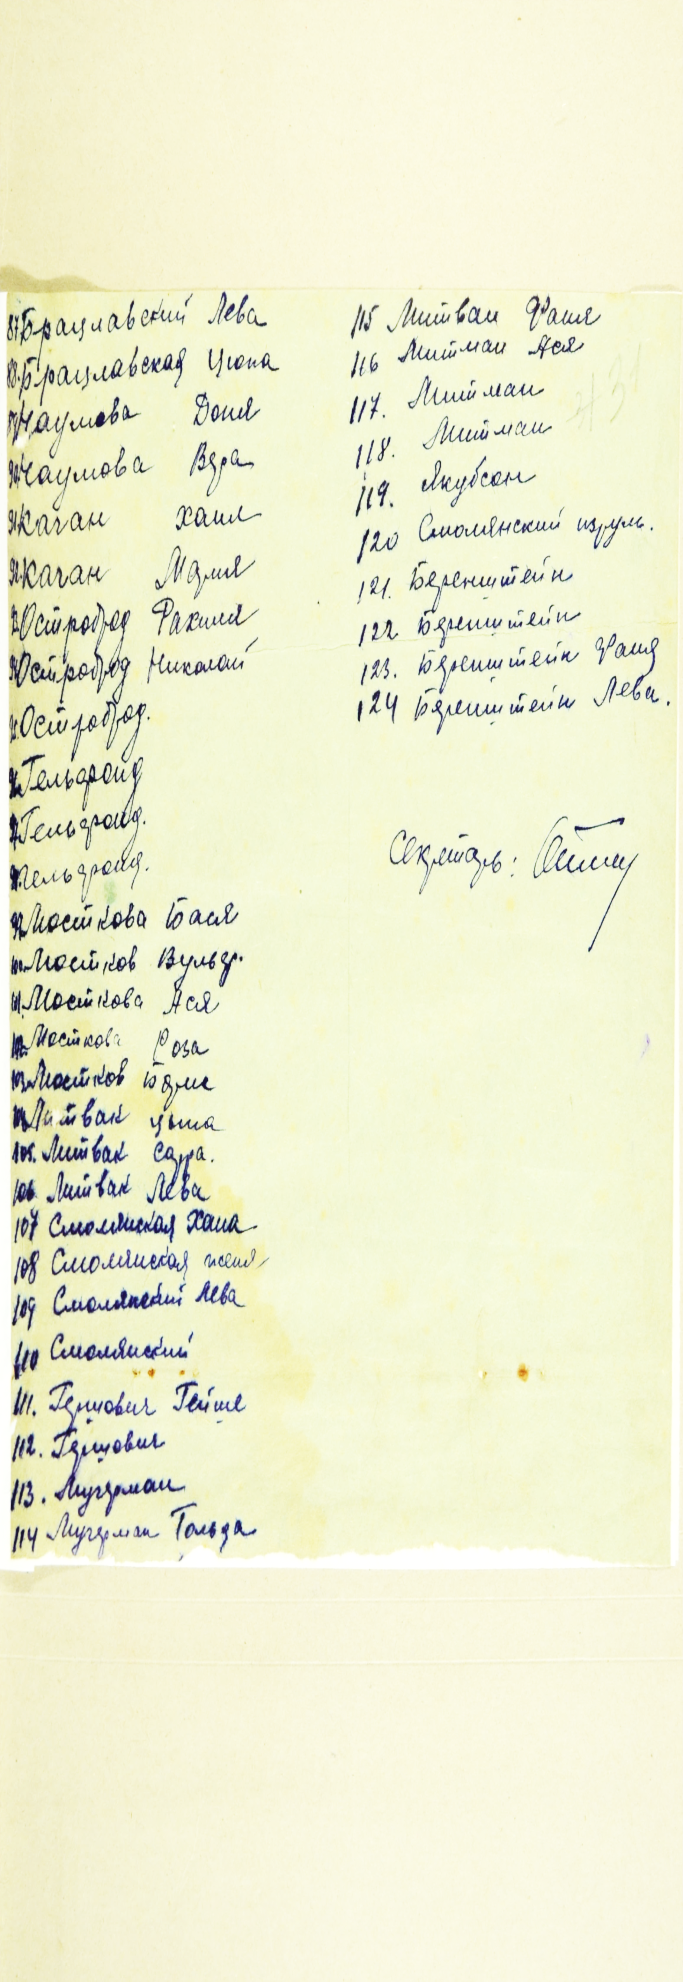 87. Брацлавский Лева
88. Брацлавская Цюпа
89. Наумова Доня
90. Наумова Вера
91. Качан Хаим
92. Качан Мария
93. Острофод Рахиля
94. Острофод Николай
95. Острофод.
96. Гельфонд
97. Гельфонд.
98. Гельфонд.
99. Мосткова Бася
100. Мостков Вульф.
101. Мосткова Ася
102. Мосткова Роза
103. Мостков
104. Литвак
105. Литвак Сарра.
106 Литвак Лева
107 Смолянская Хана
108 Смолянская Женя
109 Смолянский Лева
110 Смолянский
111. Гершович Гейше
112. Гершович
113. Мучерман
114 Мучерман Гольда
115 Литван Фаня
116 Литман Ася
117. Литман
118. Литман
119. Якубсон
120 Смолянский Изруль.
121. Беренштейн
122 Беренштейн
123. Беренштейн Фаня
124 Беренштейн Лева.
Секретарь: